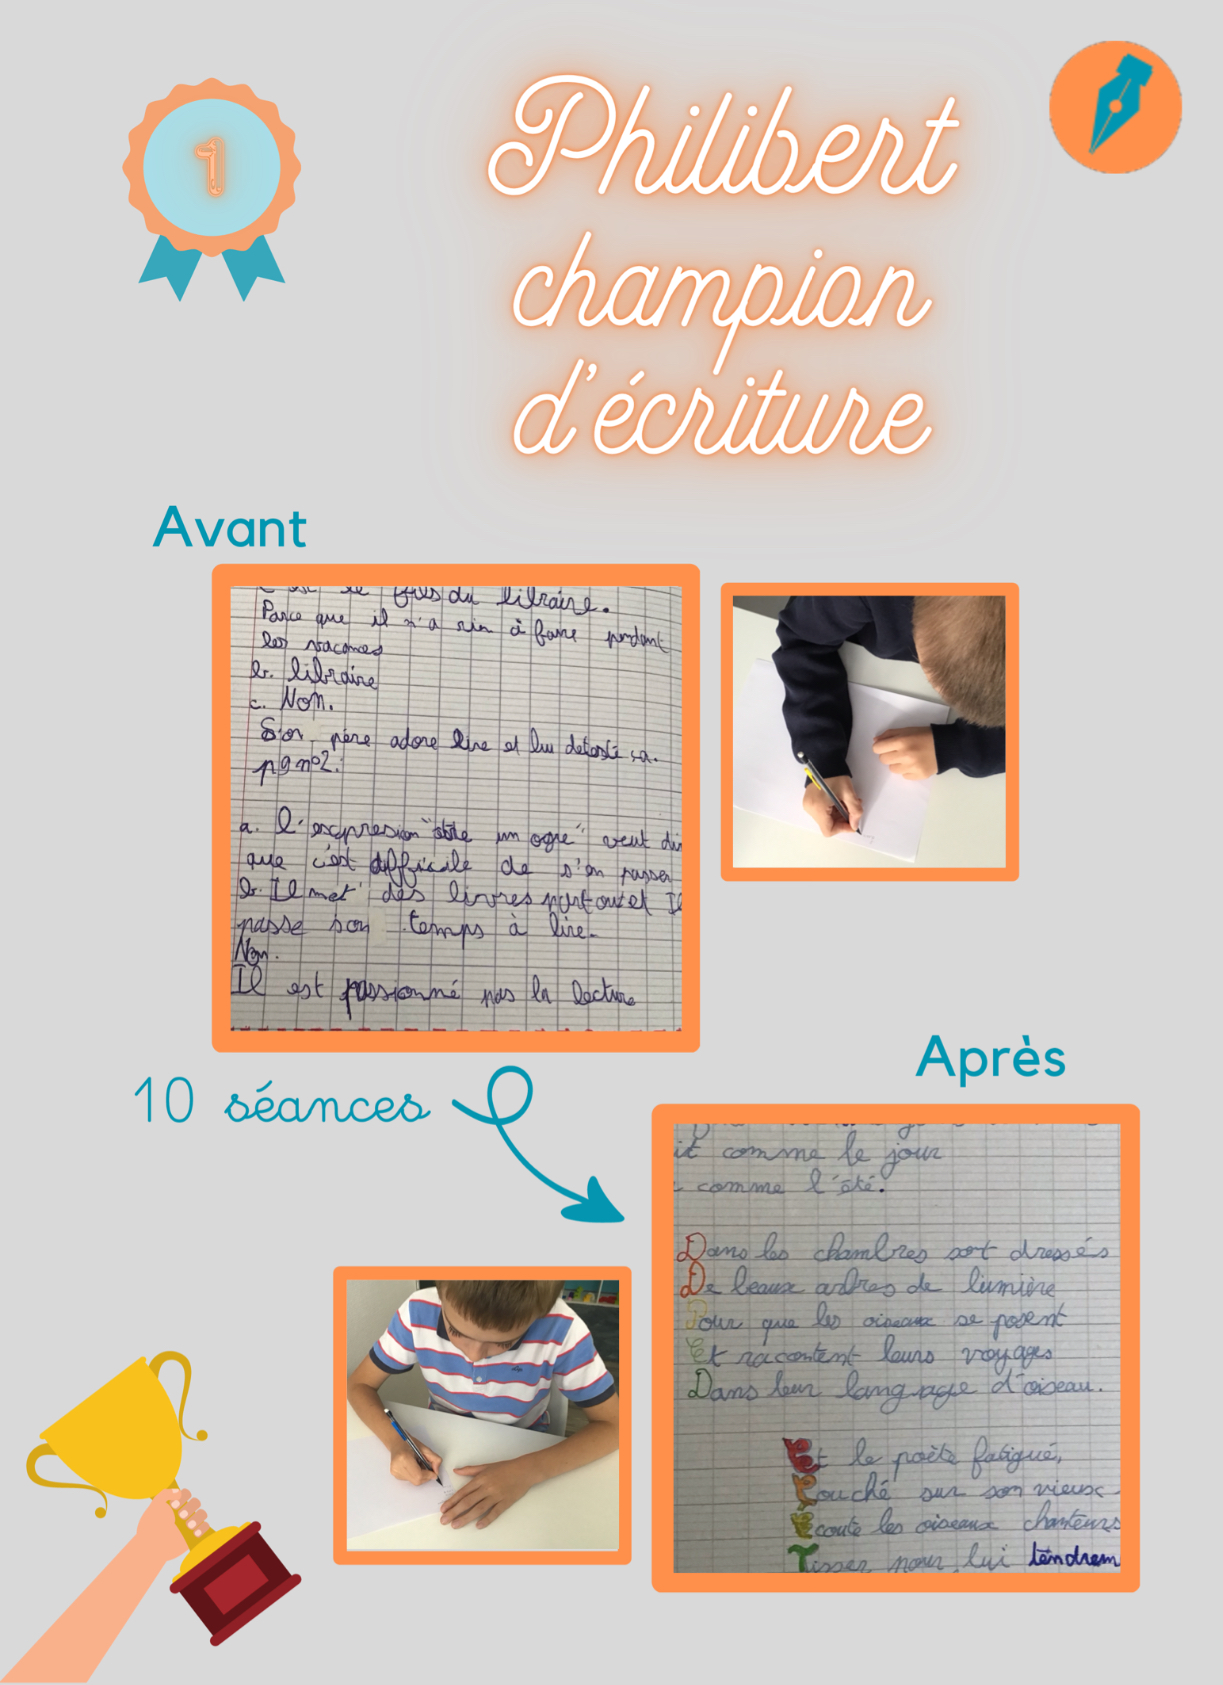 1
Philibert
champion
d'écriture
Avant
le fils du libraire.
Parce que il n'a rien à faire pendant
les vacances
b. libraire
c. Non.
Son père adore lire et lui déteste sa.
p9 n°2.
a. L'expresion "être un ogre" veut dir
que c'est difficile de s'en passer
b. Il met des livres partout et Il
passe son temps à lire.
Non.
Il est passionné pas la lecture
10 séances
Après
it comme le jour
comme l'été.
Dans les chambres sont dressés
De beaux arbres de lumière
Pour que les oiseaux se posent
Et racontent leurs voyages
Dans leur language d'oiseau.
Et le poète fatigué,
Couché sur son vieux
Écoute les oiseaux chanteurs
Tisser pour lui tendrem